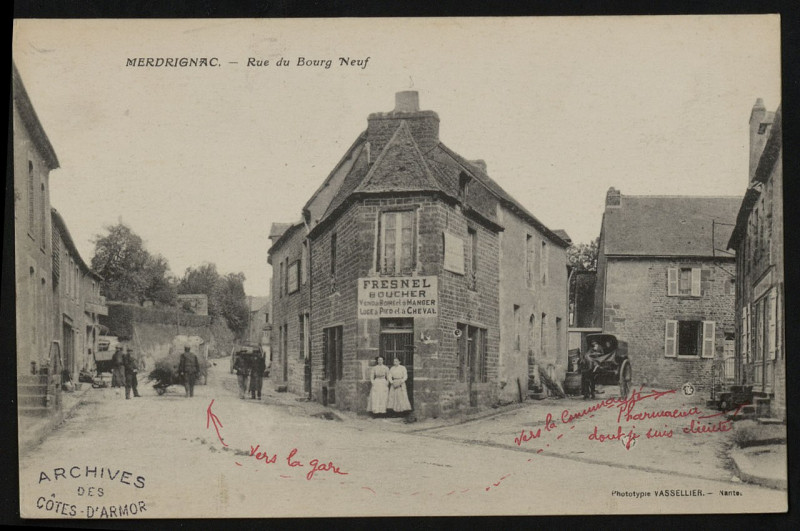 MERDRIGNAC. — Rue du Bourg Neuf
FRESNEL
BOUCHER
VEND à BOIRE et à MANGER
LOGE à PIED et à CHEVAL
Vers la Communauté
Pharmacien
dont je suis cliente
Vers la gare
ARCHIVES
DES
CÔTES-D'ARMOR
Phototypie VASSELLIER. — Nantes.